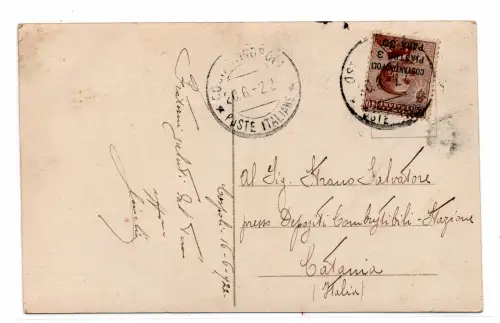 Fraterni saluti dal tuo
Cospoli 16-6-922
COSTANTINOPOLI
20.6.-22
* POSTE ITALIANE *
COSTANTINOPOLI
PIASTRE 3
PARA 30
POSTE
Al Sig. Strano Salvatore
presso Depositi Combustibili-Stazione
Catania
(Italia)